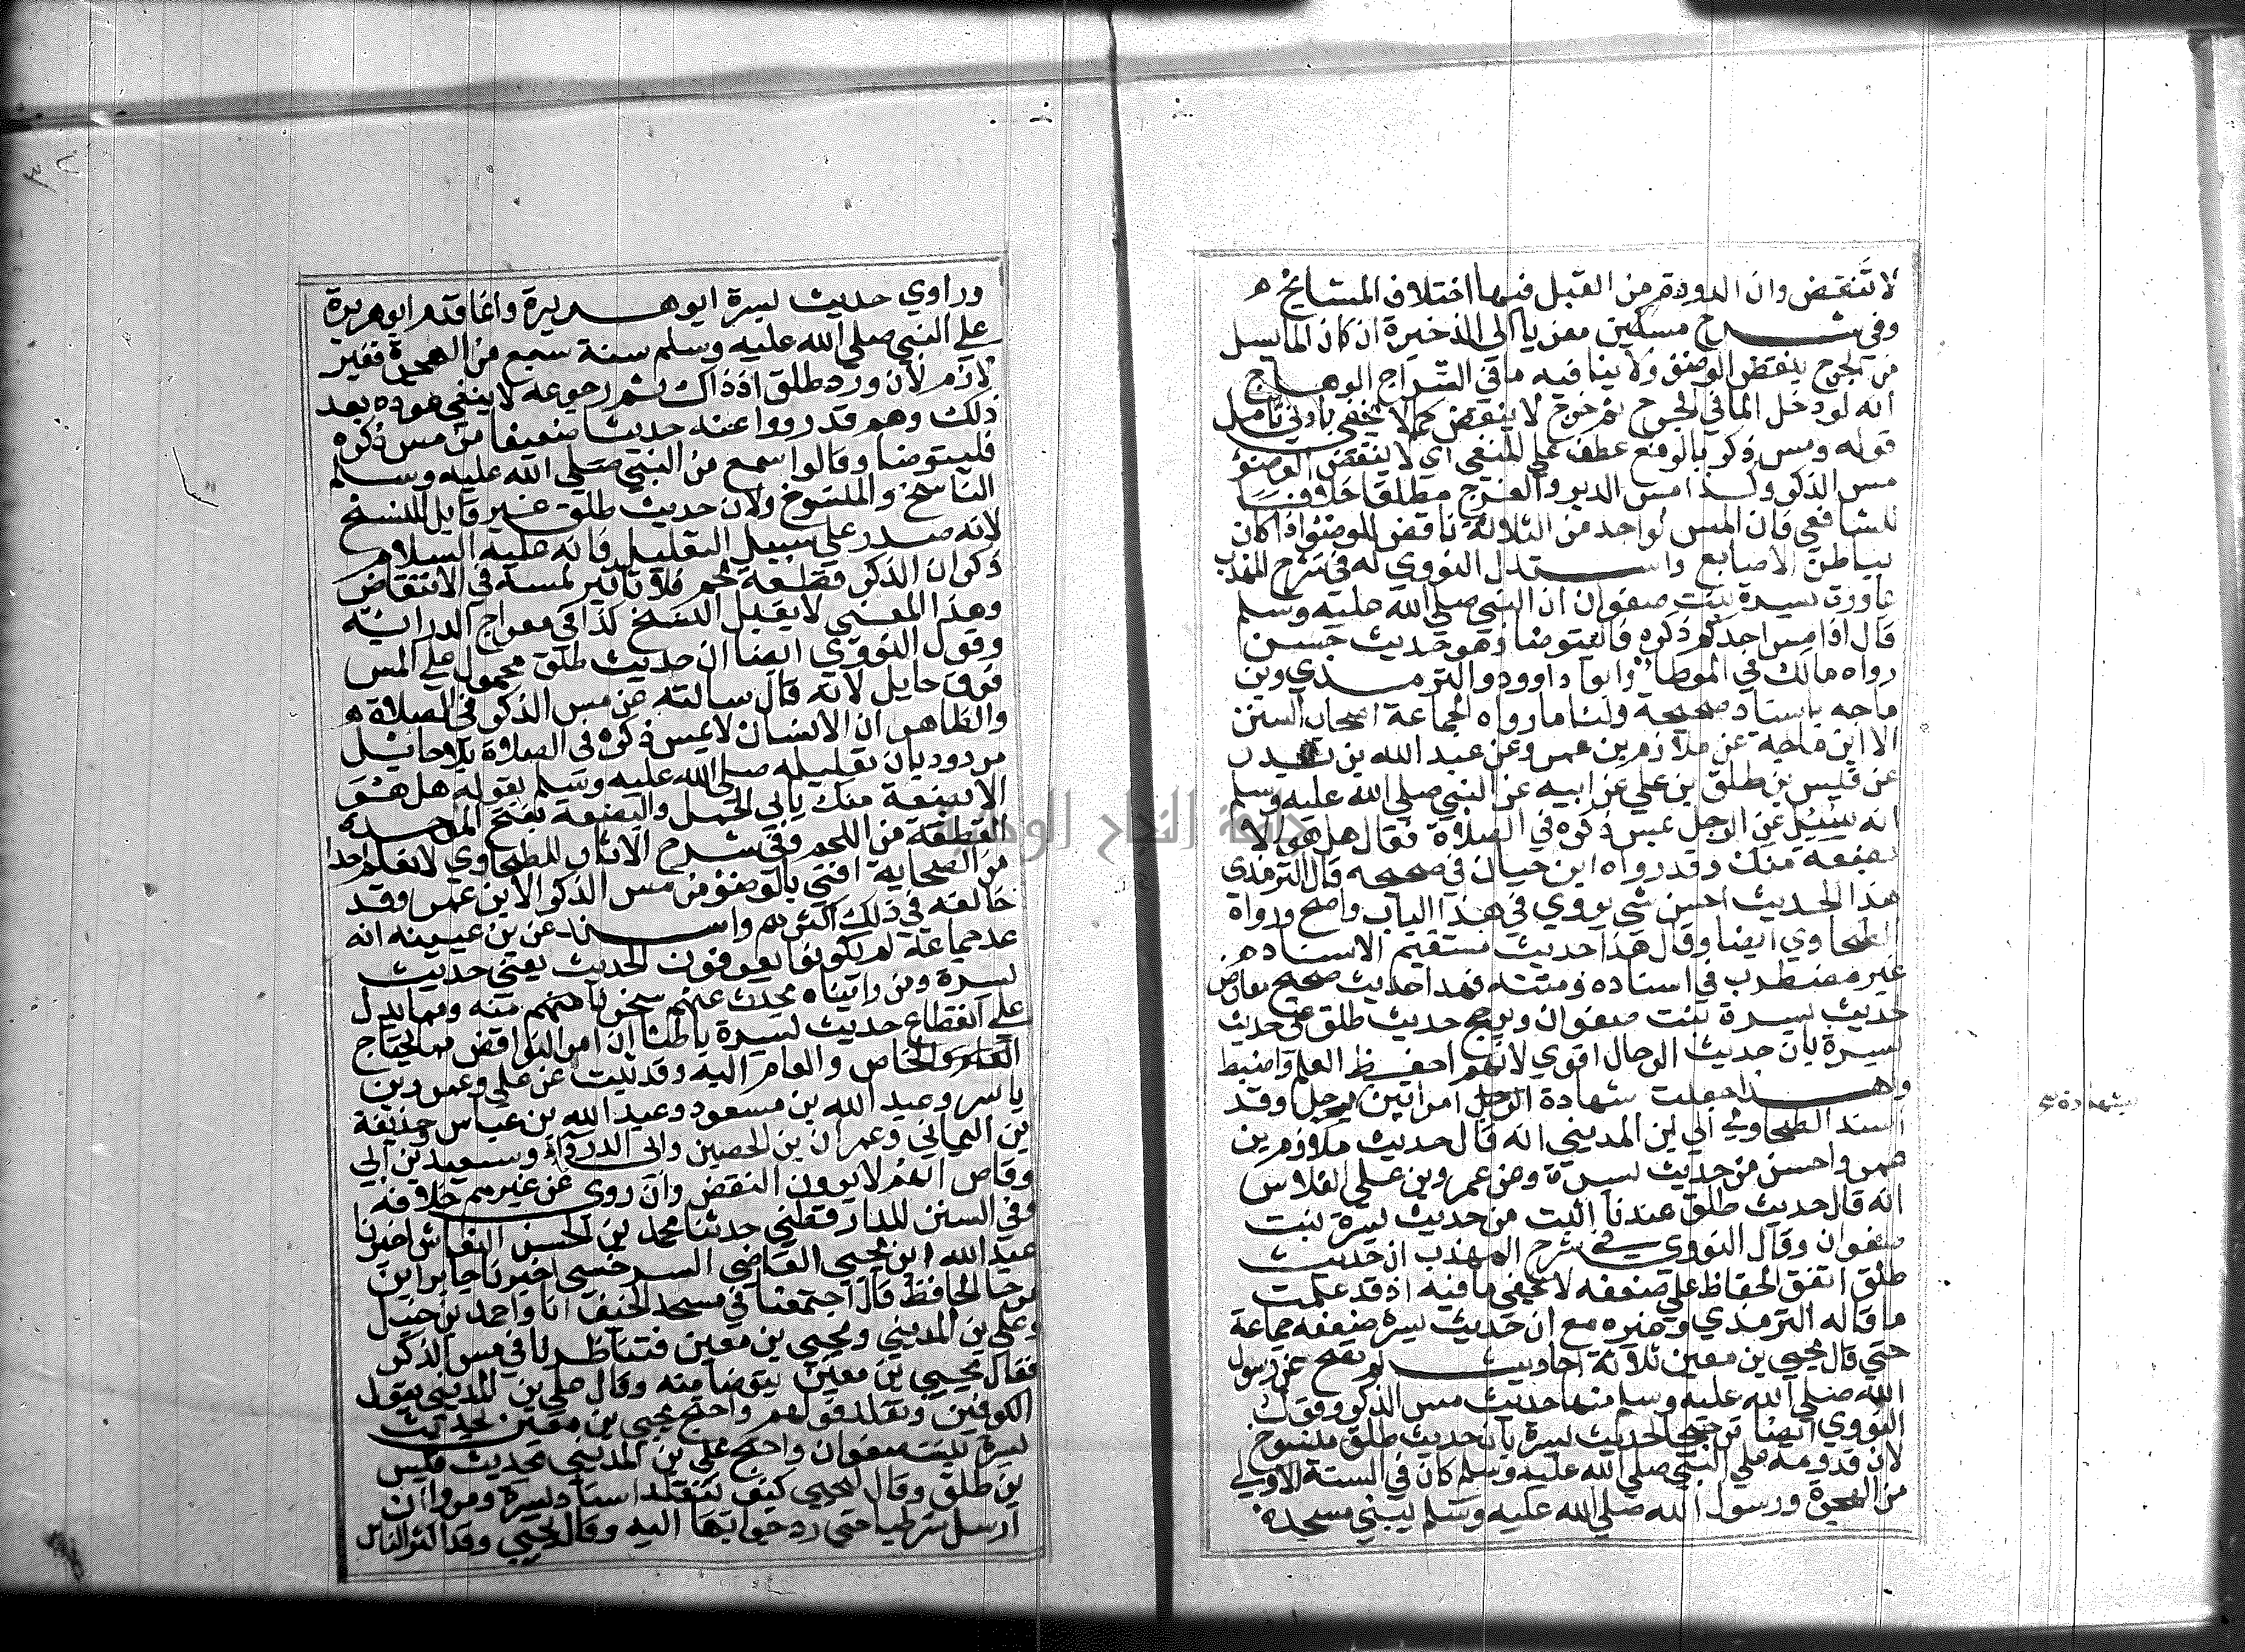 لا تنقض وان الدودة من القبل فيها اختلاف المشايخ ه
وفي شرح مسكين معزيا الى الذخيرة ان كان الما يسيل
من الجرح ينقض الوضؤ ولا ينافيه ما في السراج الوهاج
انه لو دخل الما في الجرح ثم خرج لا ينقض كما لا يخفى بادني تامل
قوله ومس ذكر بالرفع عطف علي المنفي اي لا ينقض الوضؤ
مس الذكر وكذا مس الدبر والفرج مطلقا خلافا
للشافعي فان المس لواحد من الثلاثة ناقض للوضؤ اذا كان
بباطن الاصابع واستدل النووي له في شرح المهذب
بما روت بسرة بنت صفوان ان النبي صلي الله عليه وسلم
قال اذا مس احدكم ذكره فليتوضا وهو حديث حسن
رواه مالك في الموطا وابوا داوود والترمذي وبن
ماجه باسناد صحيحة ولنا ما رواه الجماعة اصحاب السنن
الا ابن ماجه عن ملازم بن عمرو عن عبد الله بن بدر
عن قيس بن طلق بن علي عن ابيه عن النبي صلي الله عليه وسلم
انه سئيل عن الرجل يمس ذكره في الصلاة فقال هل هو الا
بضعة منك وقد رواه ابن حبان في صحيحه قال الترمذي
هذا الحديث احسن شي يروي في هذا الباب واصح ورواه
الطحاوي ايضا وقال هذا حديث مستقيم الاسناد ه
غير مضطرب في اسناده ومتنه فهذا حديث صحيح معارض
حديث بسرة بنت صفوان ويرجح حديث طلق علي حديث
بسرة بان حديث الرجال اقوي لانهم احفظ للعلم واضبط
ولهذا جعلت شهادة امراتين برجل وقد
اسند الطحاوي الي ابن المديني انه قال حديث ملازم بن
عمرو احسن من حديث بسرة وعن عمرو بن علي الفلاس
انه قال حديث طلق عندنا اثبت من حديث بسرة بنت
صفوان وقال النووي في شرح المهذب ان حديث
طلق اتفق الحفاظ علي ضعفه لا يخفي ما فيه اذ قد علمت
ما قاله الترمذي وغيره مع ان حديث بسرة ضعفه جماعة
حتي قال يحيي بن معين ثلاثة احاديث لم يصح عن رسول
الله صلي الله عليه وسلم منها حديث مس الذكر وقول
النووي ايضا ترجيحا لحديث بسرة بان حديث طلق منسوخ
لان قدومه علي النبي صلي الله عليه وسلم كان في السنة الاولي
من الهجرة ورسول الله صلي الله عليه وسلم يبني مسجده
بشهادة
وراوي حديث بسرة ابو هريرة وانما قدم ابو هريرة
علي النبي صلي الله عليه وسلم سنة سبع من الهجرة فغير
لازم لان ورود طلق اذ ذاك ثم رجوعه لا ينفي عوده بعد
ذلك وهم قد رووا عنه حديثا ضعيفا من مس ذكره
فليتوضا وقالوا سمع من النبي صلي الله عليه وسلم
الناسخ والمنسوخ ولان حديث طلق غير قابل للنسخ
لانه صدر علي سبيل التعليل فانه عليه السلام
ذكر ان الذكر قطعة لحم فلا تاثير لمسه في الانتقاض
وهذا المعني لا يقبل النسخ كذا في معراج الدراية
وقول النووي ايضا ان حديث طلق محمول علي المس
فوق حايل لانه قال سالته عن مس الذكر في الصلاة ه
والظاهر ان الانسان لا يمس ذكره في الصلاة بلا حائل
مردود بان تعليله صلي الله عليه وسلم بقوله هل هو
الا بضعة منك يابي الحمل والبضعة بفتح الموحدة
القطعة من اللحم وفي شرح الاثار للطحاوي لا نعلم احدا
من الصحابة افتي بالوضؤ من مس الذكر الا ابن عمر وقد
خالفه في ذلك اكثرهم واسند عن بن عيينه انه
عد جماعة لم يكونوا يعرفون الحديث يعني حديث
بسرة ومن رايناه يحدث عنهم سخرنا منهم منه ومما يدل
علي انقطاع حديث بسرة باطنا ان امر النواقض مما يحتاج
والخاص والعام اليه وقد ثبت عن علي وعمر وبن
ياسر وعبد الله بن مسعود وعبد الله بن عباس وحذيفة
بن اليماني وعمران بن الحصين وابي الدرداء وسعيد بن ابي
وقاص انهم لا يرون النقض وان روي عن غيرهم خلافه
وفي السنن للدارقطني حدثنا محمد بن الحسن النقاش اخبرنا
عبد الله ابن يحيي القاضي السرخسي اخبرنا جابر ابن
مرجا الحافظ قال اجتمعنا في مسجد الخيف انا واحمد بن حنبل
وعلي بن المديني ويحيي بن معين فتناظرنا في مس الذكر
فقال يحيي بن معين يتوضا منه وقال علي بن المديني بقول
الكوفيين وتقلد قولهم واحتج يحيي بن معين بحديث
بسرة بنت صفوان واحتج علي بن المديني بحديث قيس
بن طلق وقال ليحيي كيف تتقلد اسناد بسرة ومروان
ارسل شرطيا حتي رد جوابها اليه وقال يحيي وقد اكثر الناس